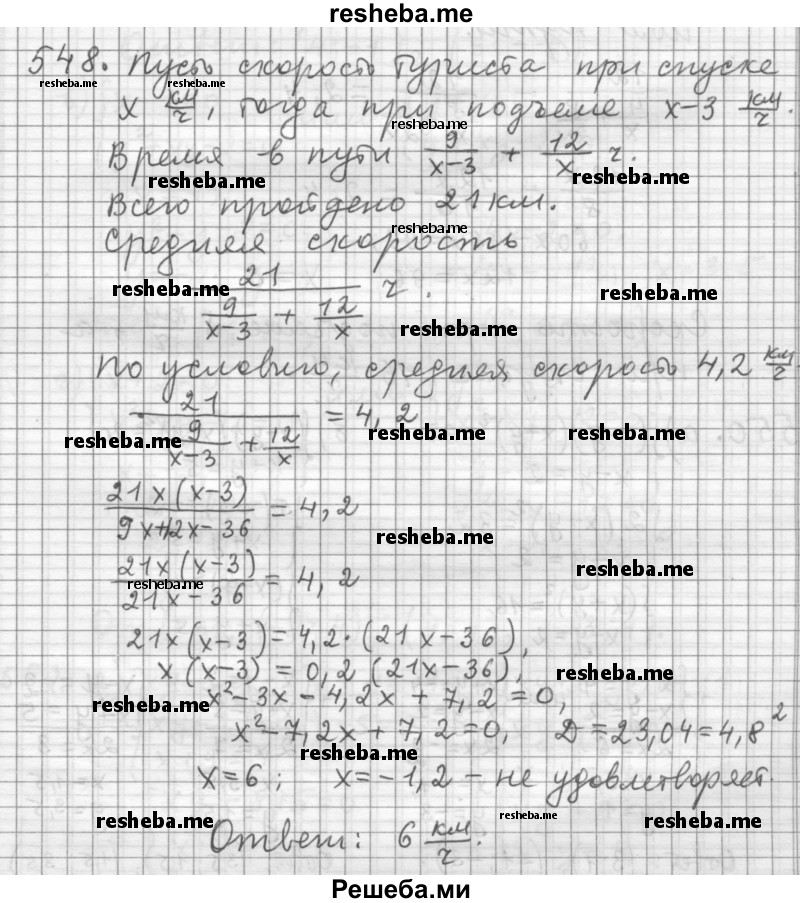 resheba.me
548. Пусть скорость туриста при спуске
resheba.me resheba.me
x км/ч, тогда при подъеме x-3 км/ч.
resheba.me
Время в пути 9/(x-3) + 12/x ч.
resheba.me resheba.me
Всего пройдено 21 км.
resheba.me
Средняя скорость
21/(9/(x-3) + 12/x) ч.
resheba.me resheba.me
resheba.me
По условию, средняя скорость 4,2 км/ч.
21/(9/(x-3) + 12/x) = 4,2
resheba.me resheba.me resheba.me
21x(x-3)/(9x+12x-36) = 4,2
resheba.me
21x(x-3)/(21x-36) = 4,2
resheba.me resheba.me
21x(x-3) = 4,2·(21x-36),
x(x-3) = 0,2(21x-36),
resheba.me
x²-3x-4,2x+7,2=0,
resheba.me
x²-7,2x+7,2=0, D=23,04=4,8²
resheba.me
x=6; x=-1,2 - не удовлетворяет.
resheba.me resheba.me resheba.me
Ответ: 6 км/ч.
Решеба.ми